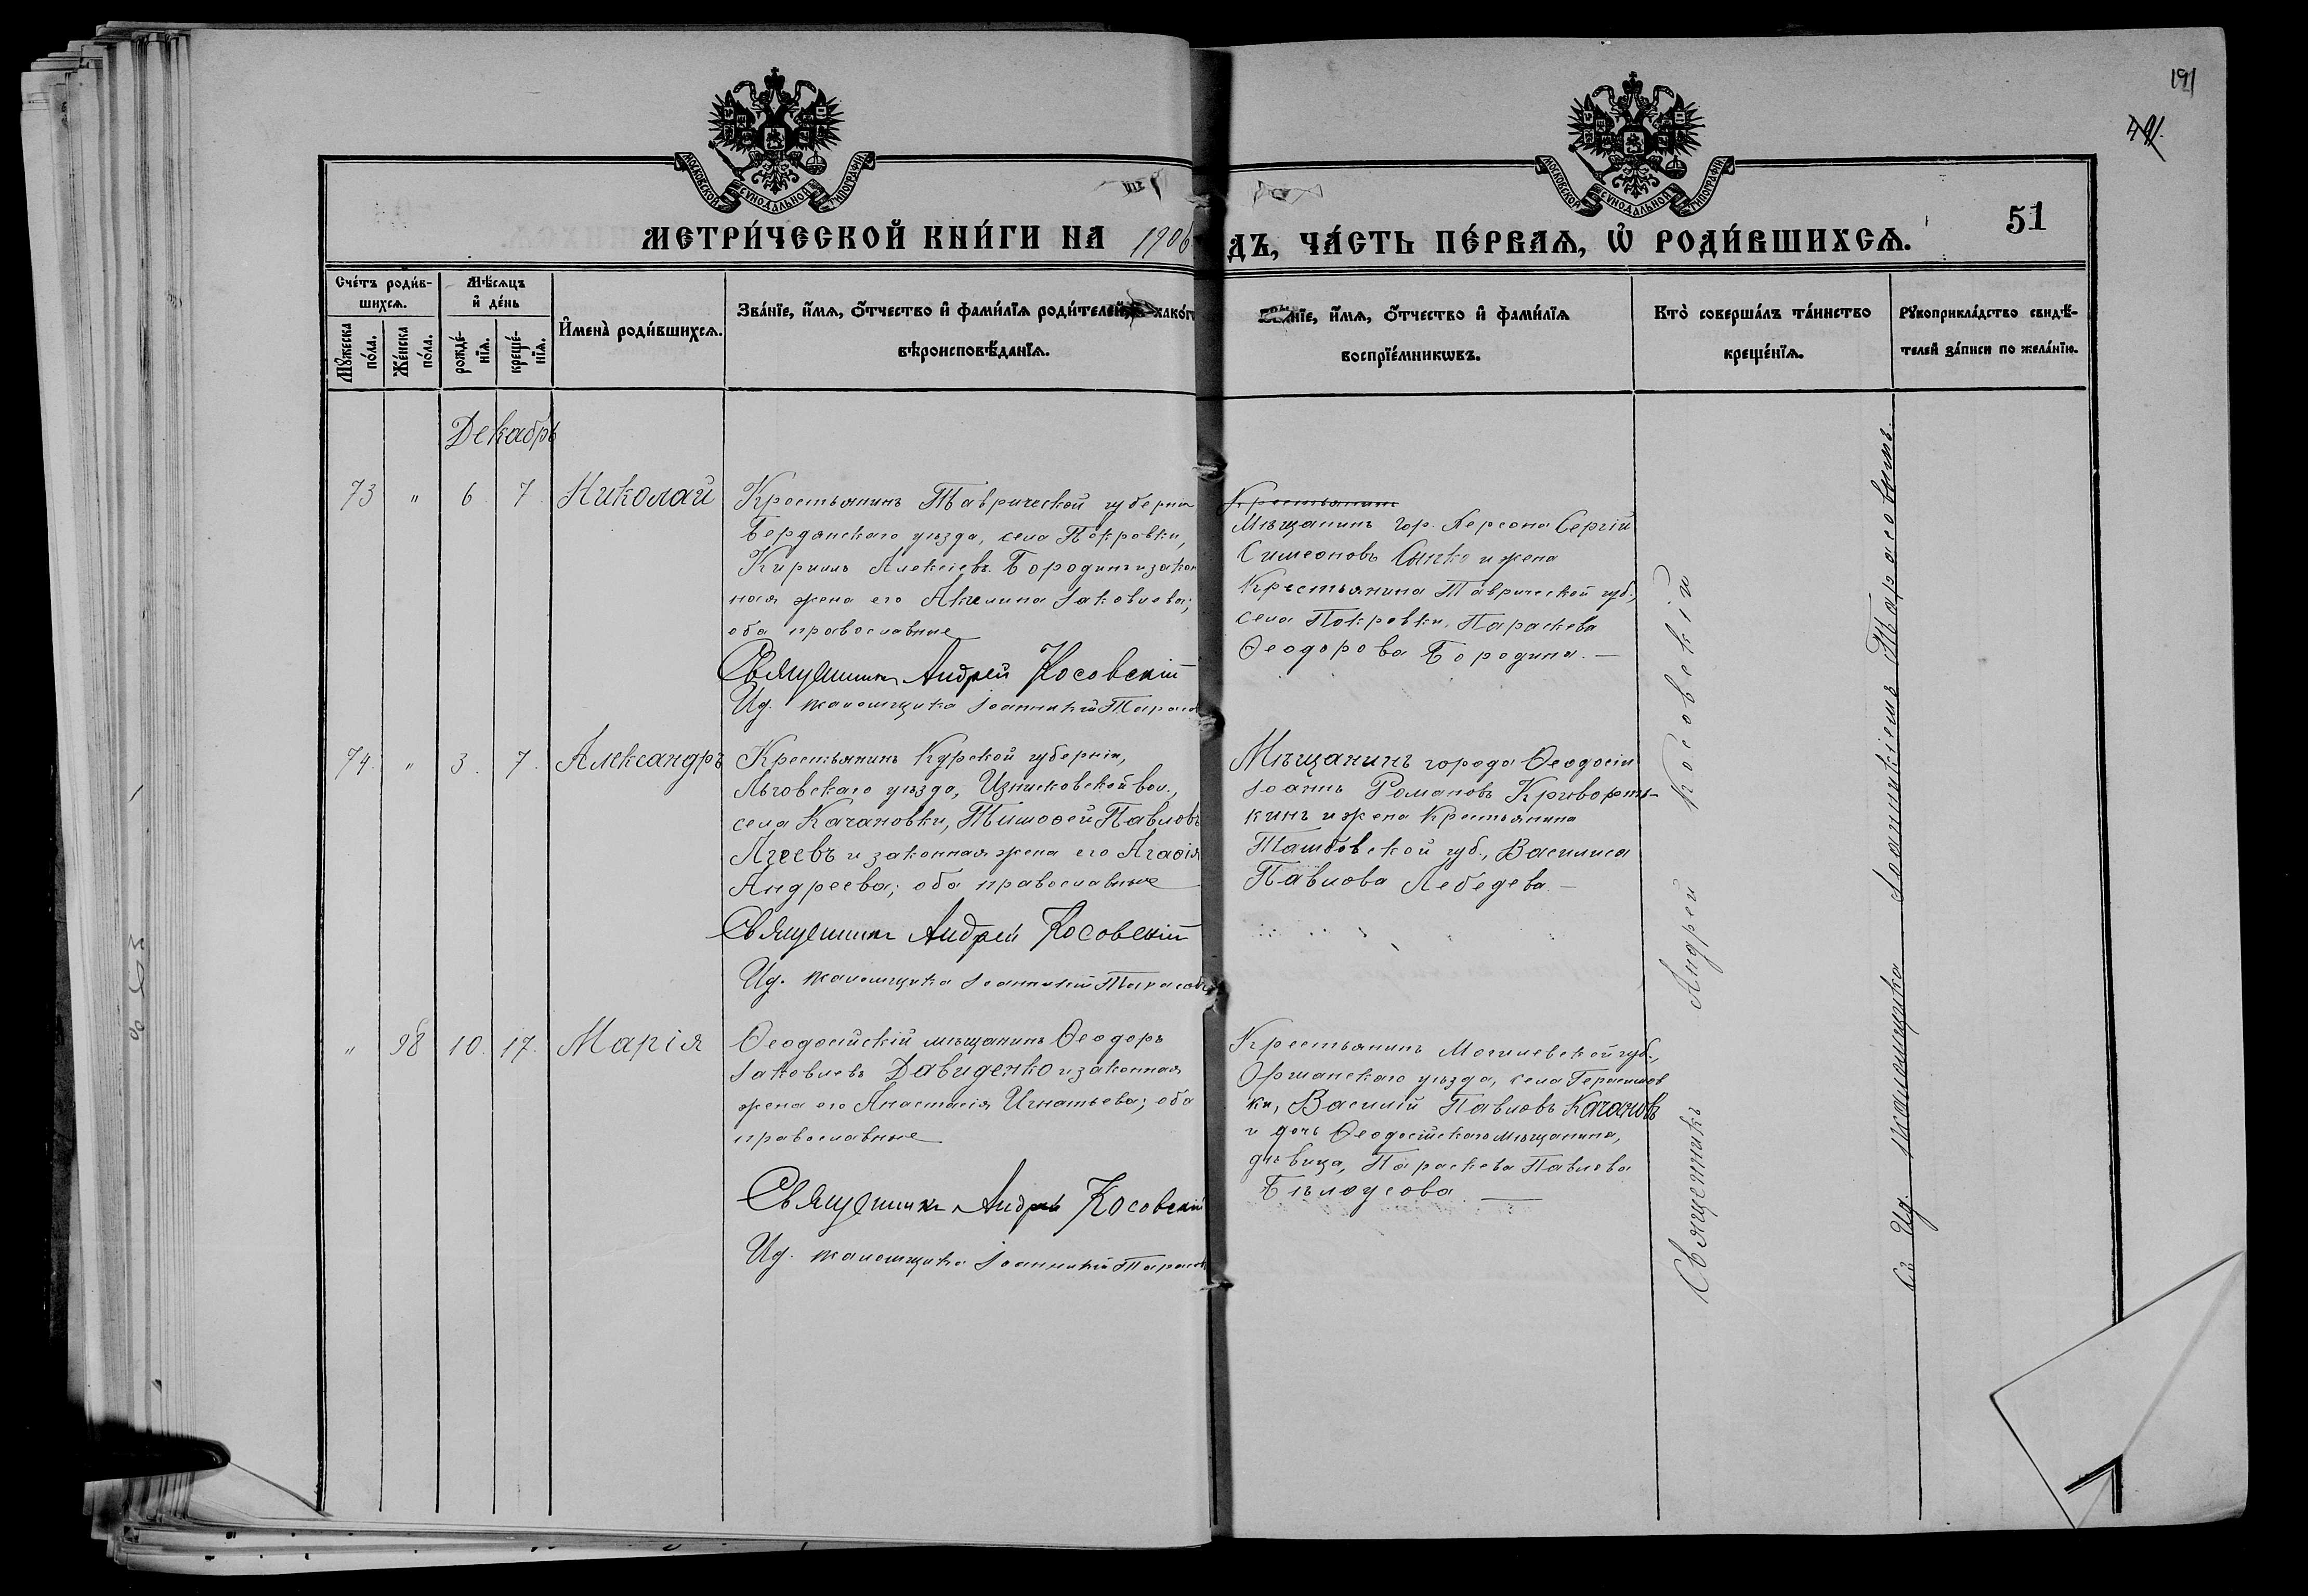 191
491.
МОСКОВСКОЙ СУНОДАЛЬНОЙ ТИПОГРАФІИ
МОСКОВСКОЙ СУНОДАЛЬНОЙ ТИПОГРАФІИ
МЕТРИ́ЧЕСКОЙ КНИ́ГИ НА 1906
ДЪ, ЧА́СТЬ ПЕ́РВАѦ, Ѡ҆ РОДИ́ВШИХСѦ.
51
Сче́тъ роди́в-
шихсѧ.
Мѣ́сѧцъ
и҆ де́нь
Мꙋ́жеска
по́ла.
Же́нска
по́ла.
рожде́-
нїѧ.
креще́-
нїѧ.
И҆мена̀ роди́вшихсѧ.
Зва́нїе, и҆́мѧ, ѻ҆́тчество и҆ фами́лїѧ роди́телей
хако́г
вѣроисповѣ́данїѧ.
нїе, и҆́мѧ, ѻ҆́тчество и҆ фами́лїѧ
воспрїе́мникѡвъ.
Кто̀ соверша́лъ та́инство
креще́нїѧ.
Рꙋкоприкла́дство свидѣ́-
телей за́писи по жела́нїю.
Декабрь
73 " 6 7 Николай
Крестьянинъ Таврической губерніи
Бердянскаго уѣзда, села Покровки,
Кириллъ Алексіевъ Бородинъ и закон
ная жена его Акилина Іаковлева;
оба православные
Священникъ Андрей Косовскій
Ид. псаломщика Іоанникій Тарасов
Крестьянинъ
Мѣщанинъ гор. Херсона Сергій
Симеоновъ Сычко и жена
Крестьянина Таврической губ.,
села Покровки, Параскева
Ѳеодорова Бородина. —
74. " 3. 7. Александръ
Крестьянинъ Курской губерніи,
Льговскаго уѣзда, Износковской вол.,
села Качановки, Тимоѳей Павловъ
Агеевъ и законная жена его Агаѳія
Андреева; оба православные
Священникъ Андрей Косовскій
Ид. псаломщика Іоанникій Тарасовъ
Мѣщанинъ города Ѳеодосіи
Іоаннъ Романовъ Криворот-
кинъ и жена Крестьянина
Тамбовской губ., Василиса
Павлова Лебедева. —
" 98 10. 17. Марія
Ѳеодосійскій мѣщанинъ Ѳеодоръ
Іаковлевъ Давиденко и законная
жена его Анастасія Игнатьева; оба
православные
Священникъ Андрей Косовскій
Ид. псаломщика Іоанникій Тарасов
Крестьянинъ Могилевской губ.,
Оршанскаго уѣзда, села Герасимов
ки, Василій Павловъ Качановъ
и дочь Ѳеодосійскаго мѣщанина,
дѣвица, Параскева Павлова
Бѣлоусова. —
Священникъ Андрей Косовскій
Съ Ид. псаломщика Іоанникіемъ Тарасовымъ.